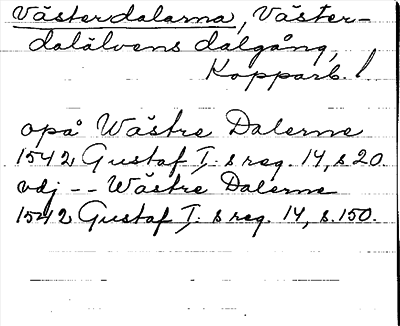 Västerdalarna, Väster-
dalälvens dalgång,
Kopparb. l
opå Wåstre Dalerne
1542 Gustaf I:s reg. 14, s. 20.
vdj -- Wåstre Dalerne
1542 Gustaf I:s reg. 14, s. 150.